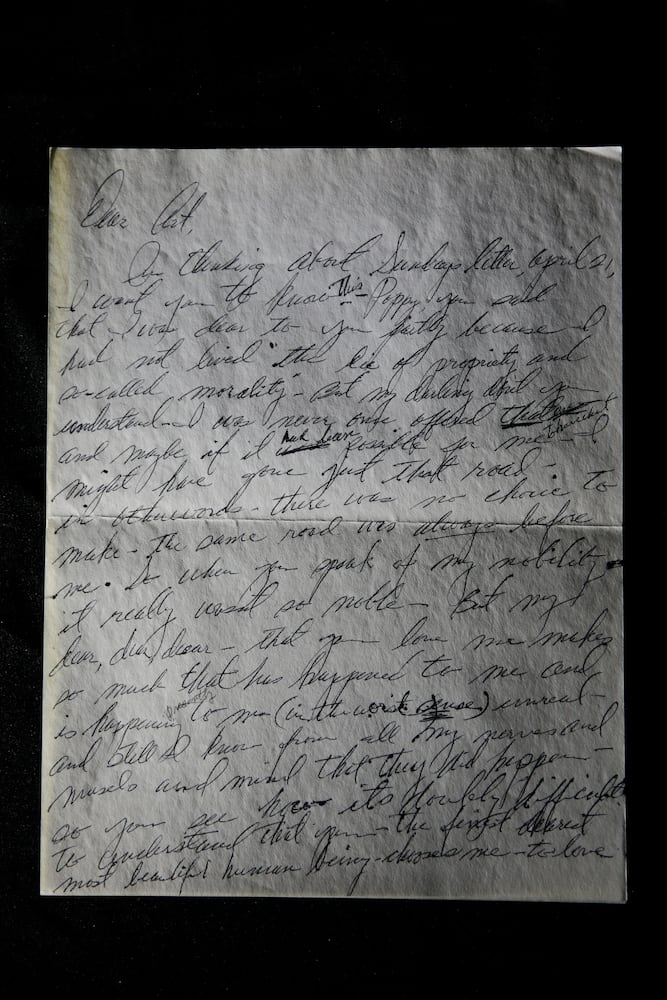 Dear Art,
In thinking about Sundays letter, April 21,
I want you to know This - Poppy you said
that I was dear to you partly because I
had not lived "the lie of propriety and
so-called morality" - But my darling don't you
understand - I was never once offered
and maybe if it had been possible for me - I
might have gone just that road -
in otherwords - there was no choice to
make - the same road was always before
me. So when you speak of my nobility
it really wasn't so noble - But my
dear, dear, dear - that you love me makes
so much that has happened to me and
is happening to me (in the worst sense) unreal -
and still I know from all my nerves and
muscls and mind that they did happen -
so you see how its doubly difficult
to understand that you - the finest dearest
most beautiful human being - chooses me - to love